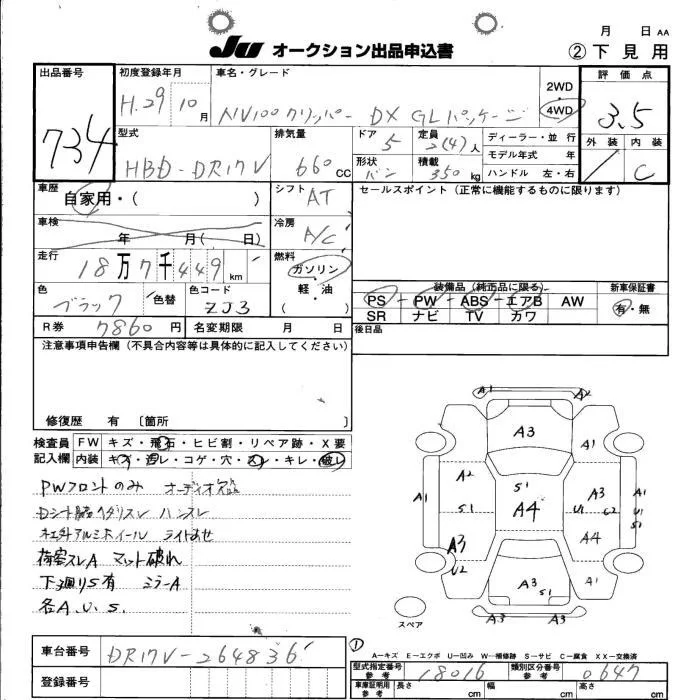 月 日 AA
JU オークション出品申込書
② 下見用
出品番号 734
初度登録年月 H.29 10月
車名・グレード NV100クリッパー DX GLパッケージ
2WD
4WD
評価点 3.5
外装 内装
C
型式 HBD-DR17V
排気量 660cc
ドア 5
定員 2(4)人
形状 バン
積載 350kg
ディーラー・並行
モデル年式 年
ハンドル 左・右
車歴 自家用・( )
シフト AT
セールスポイント(正常に機能するものに限ります)
車検 年 月( 日)
冷房 A/C
走行 18万7千449km
燃料 ガソリン・軽油
色 ブラック 色替
色コード ZJ3
装備品(純正品に限る)
PS-PW-ABS-エアB AW
SR ナビ TV カワ
新車保証書
有・無
R券 7860円
名変期限 月 日
後日品
注意事項申告欄(不具合内容等は具体的に記入してください)
修復歴 有〔箇所
検査員記入欄
FW キズ・飛石・ヒビ割・リペア跡・X要
内装 キズ・汚レ・コゲ・穴・スレ・キレ・破レ
PWフロントのみ オーディオ欠品
ハンスレ
社外アルミホイール
荷室スレA マット破れ
下廻りS有 ミラーA
各A.U.S.
A1 A2
A3 A1
A2 S1 A3 A1
A1 S1 A4 U1 U2 U1 S1
A3 U2 A4
A3 S1 A1
A3 A3
スペア
①
A-キズ E-エクボ U-凹み W-補修跡 S-サビ C-腐食 XX-交換済
車台番号 DR17V-264836
登録番号
型式指定番号 参考 18016
類別区分番号 参考 0647
車庫証明用 参考 長さ cm 幅 cm 高さ cm